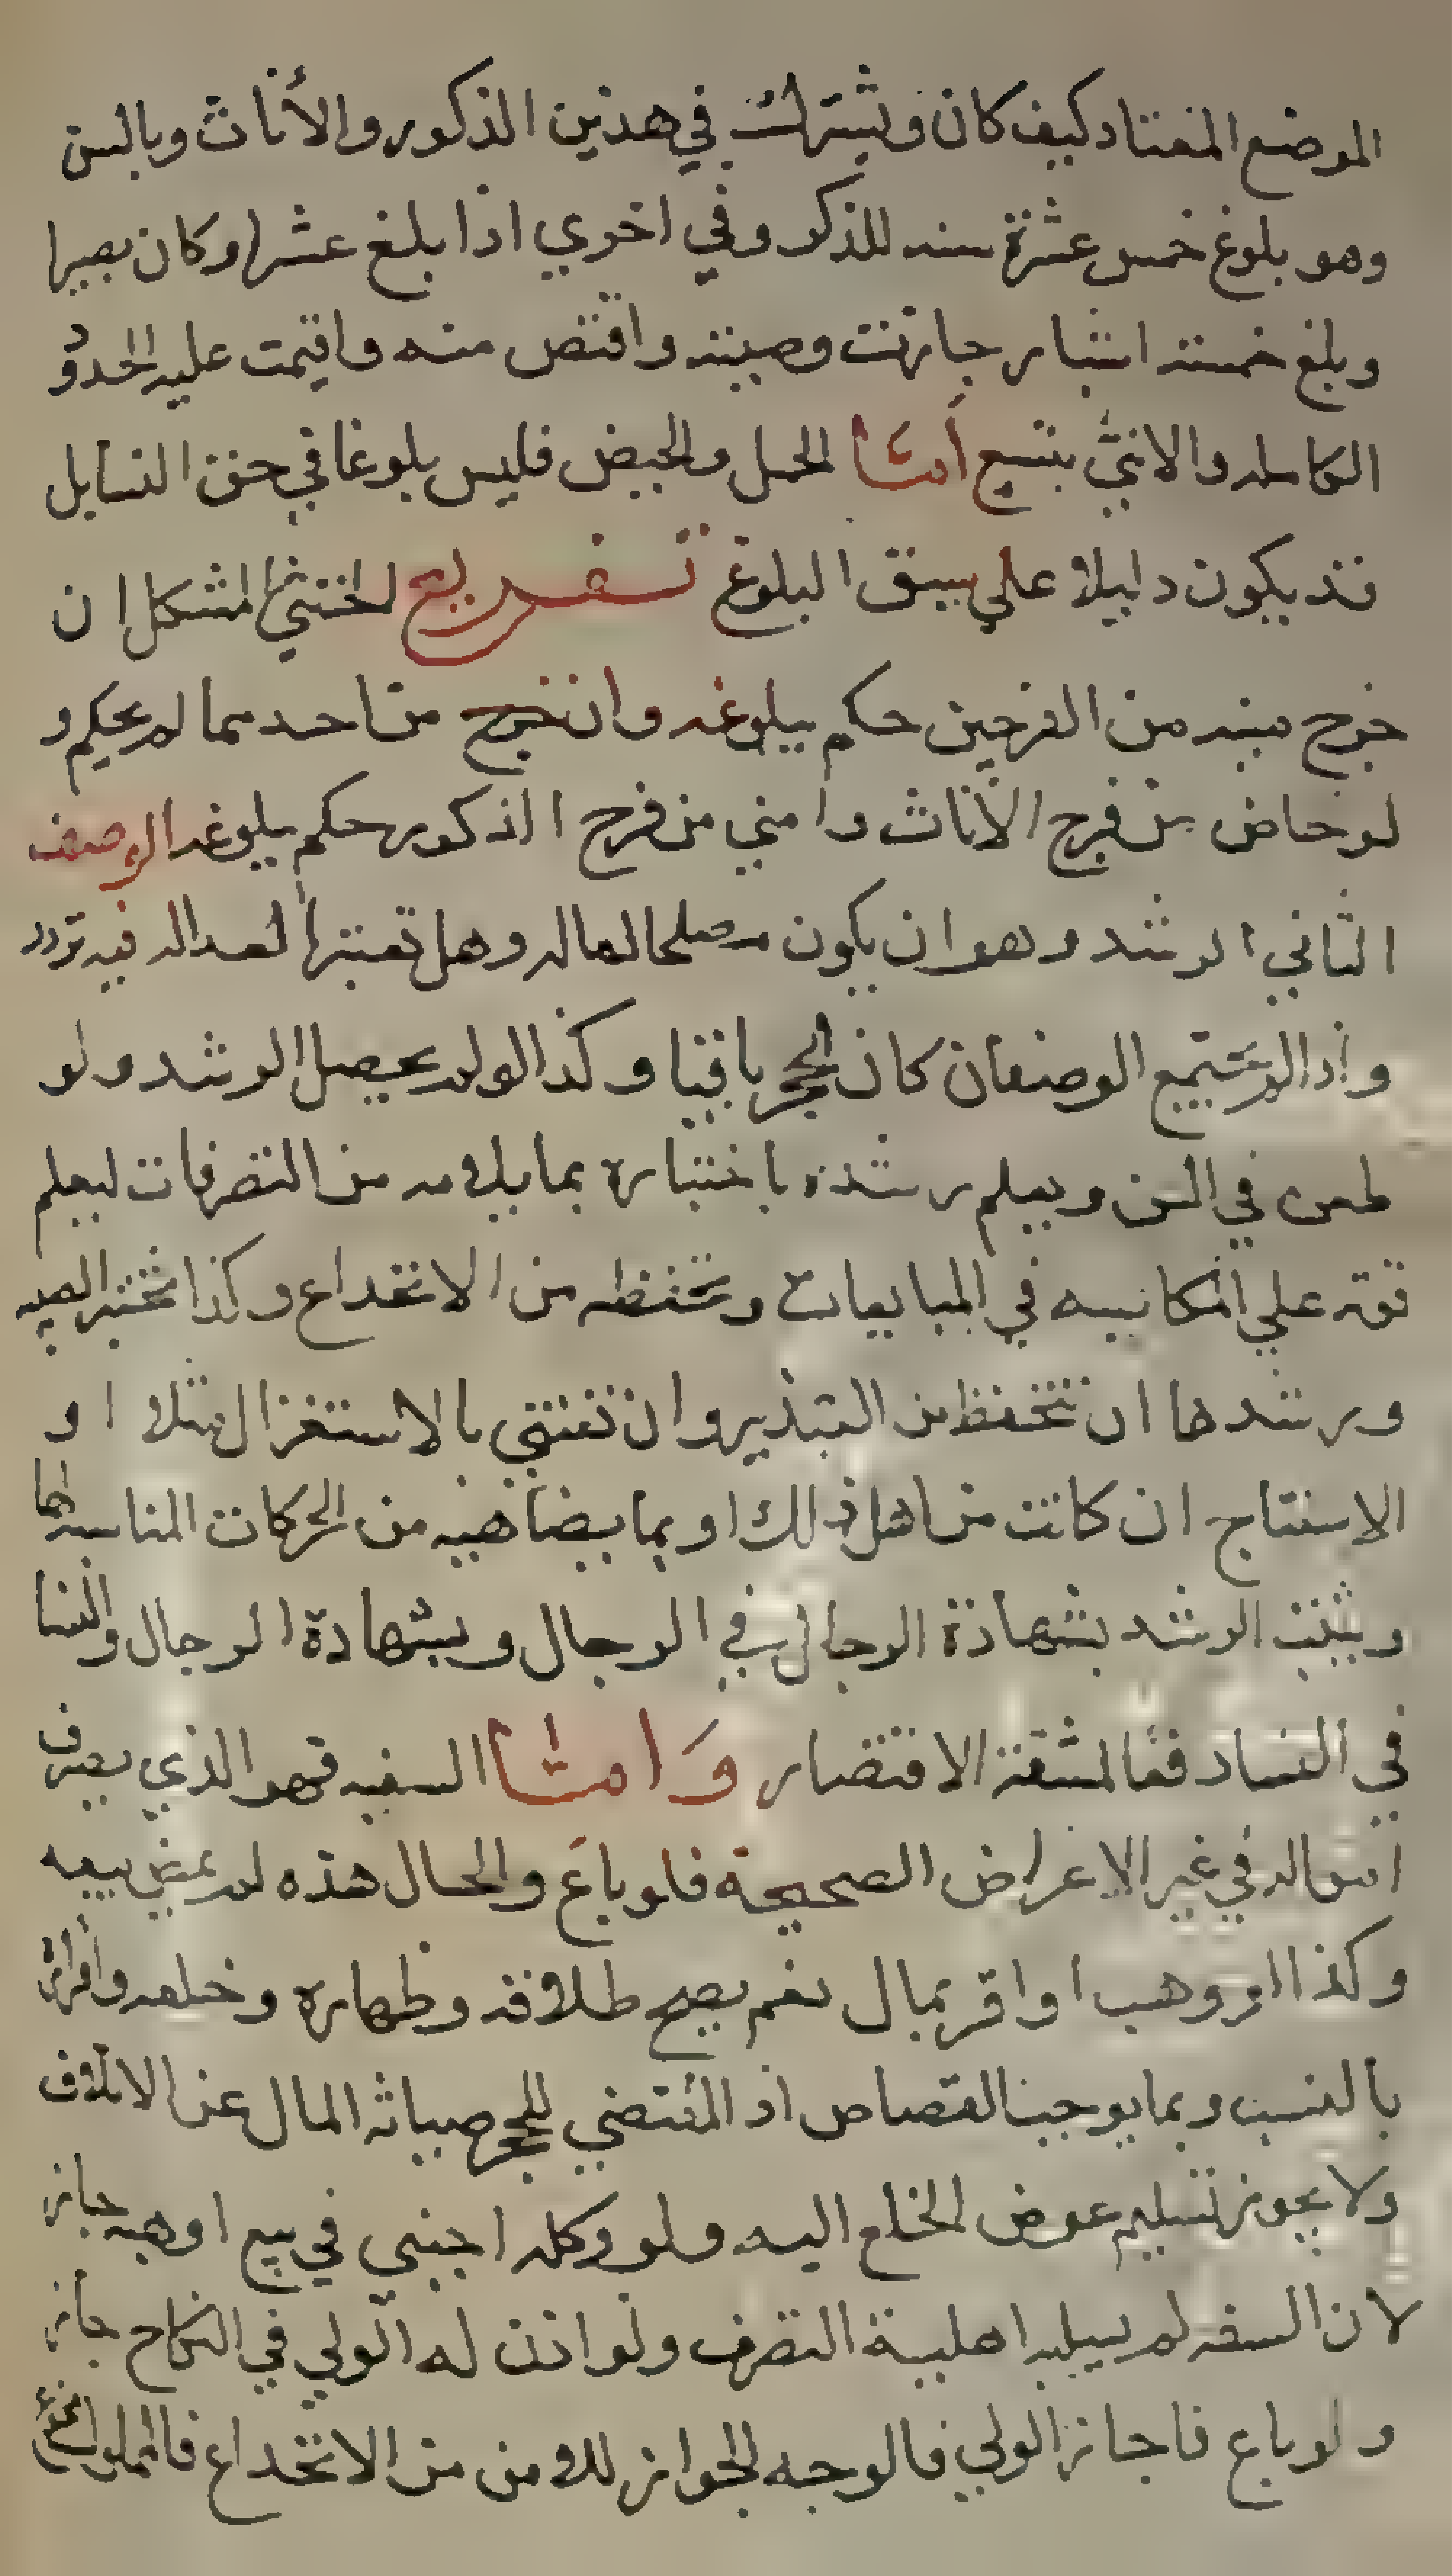 الموضع المعتاد كيف كان ويشترك في هذين الذكور والأناث وبالسن
وهو بلوغ خمس عشرة سنه للذكر وفي اخري اذا بلغ عشرا وكان بصيرا
وبلغ خمسته اشبار جازت وصيته واقتص منه واقيمت عليه الحدود
الكامله والانثي بتسع أمّا الحمل والحيض فليس بلوغا في حق النسا بل
قد يكون دليلا علي سبق البلوغ تفريع الخنثي المشكل ان
خرج منيه من الفرجين حكم ببلوغه وان خرج من احدهما لم يحكم و
لو حاض من فرج الاناث وامني من فرج الذكور حكم ببلوغه الوصف
الثاني الرشد وهو ان يكون مصلحا لماله وهل تعتبر العداله فيه تردد
واذا لم يجتمع الوصفان كان الحجر باقيا وكذا لو لم يحصل الرشد ولو
طعن في السن ويعلم رشده باختباره بما يلامه من التصرفات ليعلم
قوته علي المكايسه في المبايعات وتحفظه من الانخداع وكذا تختبر الصبيه
ورشدها ان تتحفظ من التبذير وان تعتني بالاستغزال مثلا او
الاستنتاج ان كانت من اهل ذلك او بما يضاهيه من الحركات المناسبه لها
ويثبت الرشد بشهادة الرجال في الرجال وبشهادة الرجال والنسا
في النساء دفعا لمشقة الاقتصار وَامّا السفيه فهو الذي يصرف
امواله في غير الاعراض الصحيحة فلو باع والحال هذه لم يمض بيعه
وكذا لو وهب او اقر بمال نعم يصح طلاقه وظهاره وخلعه وأقراره
بالنسب وبما يوجب القصاص اذ المقتضي للحجر صيانة المال عن الاتلاف
ولا يجوز تسليم عوض الخلع اليه ولو وكله اجنبي في بيع او هبه جاز
لان السفه لم يسلبه اهلية التصرف ولو اذن له الولي في النكاح جاز
ولو باع فاجاز الولي فالوجه الجواز للامن من الانخداع فالمملوك